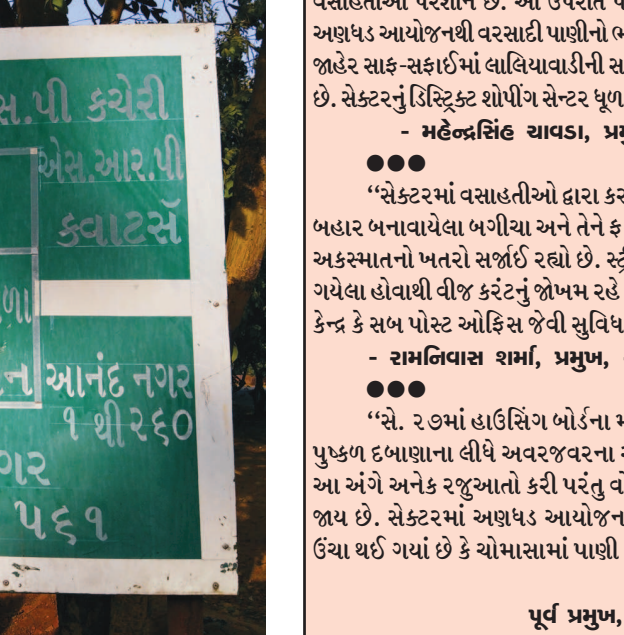 સ.પી કચેરી
એસ.આર.પી
ક્વાટર્સ
ળા
ટન આનંદ નગર
૧ થી ૨૬૦
ગર
૫૬૧
વસાહતીઓ પરેશાન છે. આ ઉપરાંત
અણધડ આયોજનથી વરસાદી પાણીનો ભ
જાહેર સાફ-સફાઈમાં લાલિયાવાડીની સ
છે. સેક્ટરનું ડિસ્ટ્રિક્ટ શોપીંગ સેન્ટર ધૂળ
- મહેન્દ્રસિંહ ચાવડા, પ્રમુ
●●●
‘‘સેક્ટરમાં વસાહતીઓ દ્વારા કર
બહાર બનાવાયેલા બગીચા અને તેને ફ
અકસ્માતનો ખતરો સર્જાઈ રહ્યો છે. સ્ટ્રી
ગયેલા હોવાથી વીજ કરંટનું જોખમ રહે
કેન્દ્ર કે સબ પોસ્ટ ઓફિસ જેવી સુવિધ
- રામનિવાસ શર્મા, પ્રમુખ,
●●●
‘‘સે. ૨૭માં હાઉસિંગ બોર્ડના મ
પુષ્કળ દબાણાના લીધે અવરજવરના
આ અંગે અનેક રજુઆતો કરી પરંતુ વો
જાય છે. સેક્ટરમાં અણધડ આયોજન
ઉંચા થઈ ગયાં છે કે ચોમાસામાં પાણી
પૂર્વ પ્રમુખ,